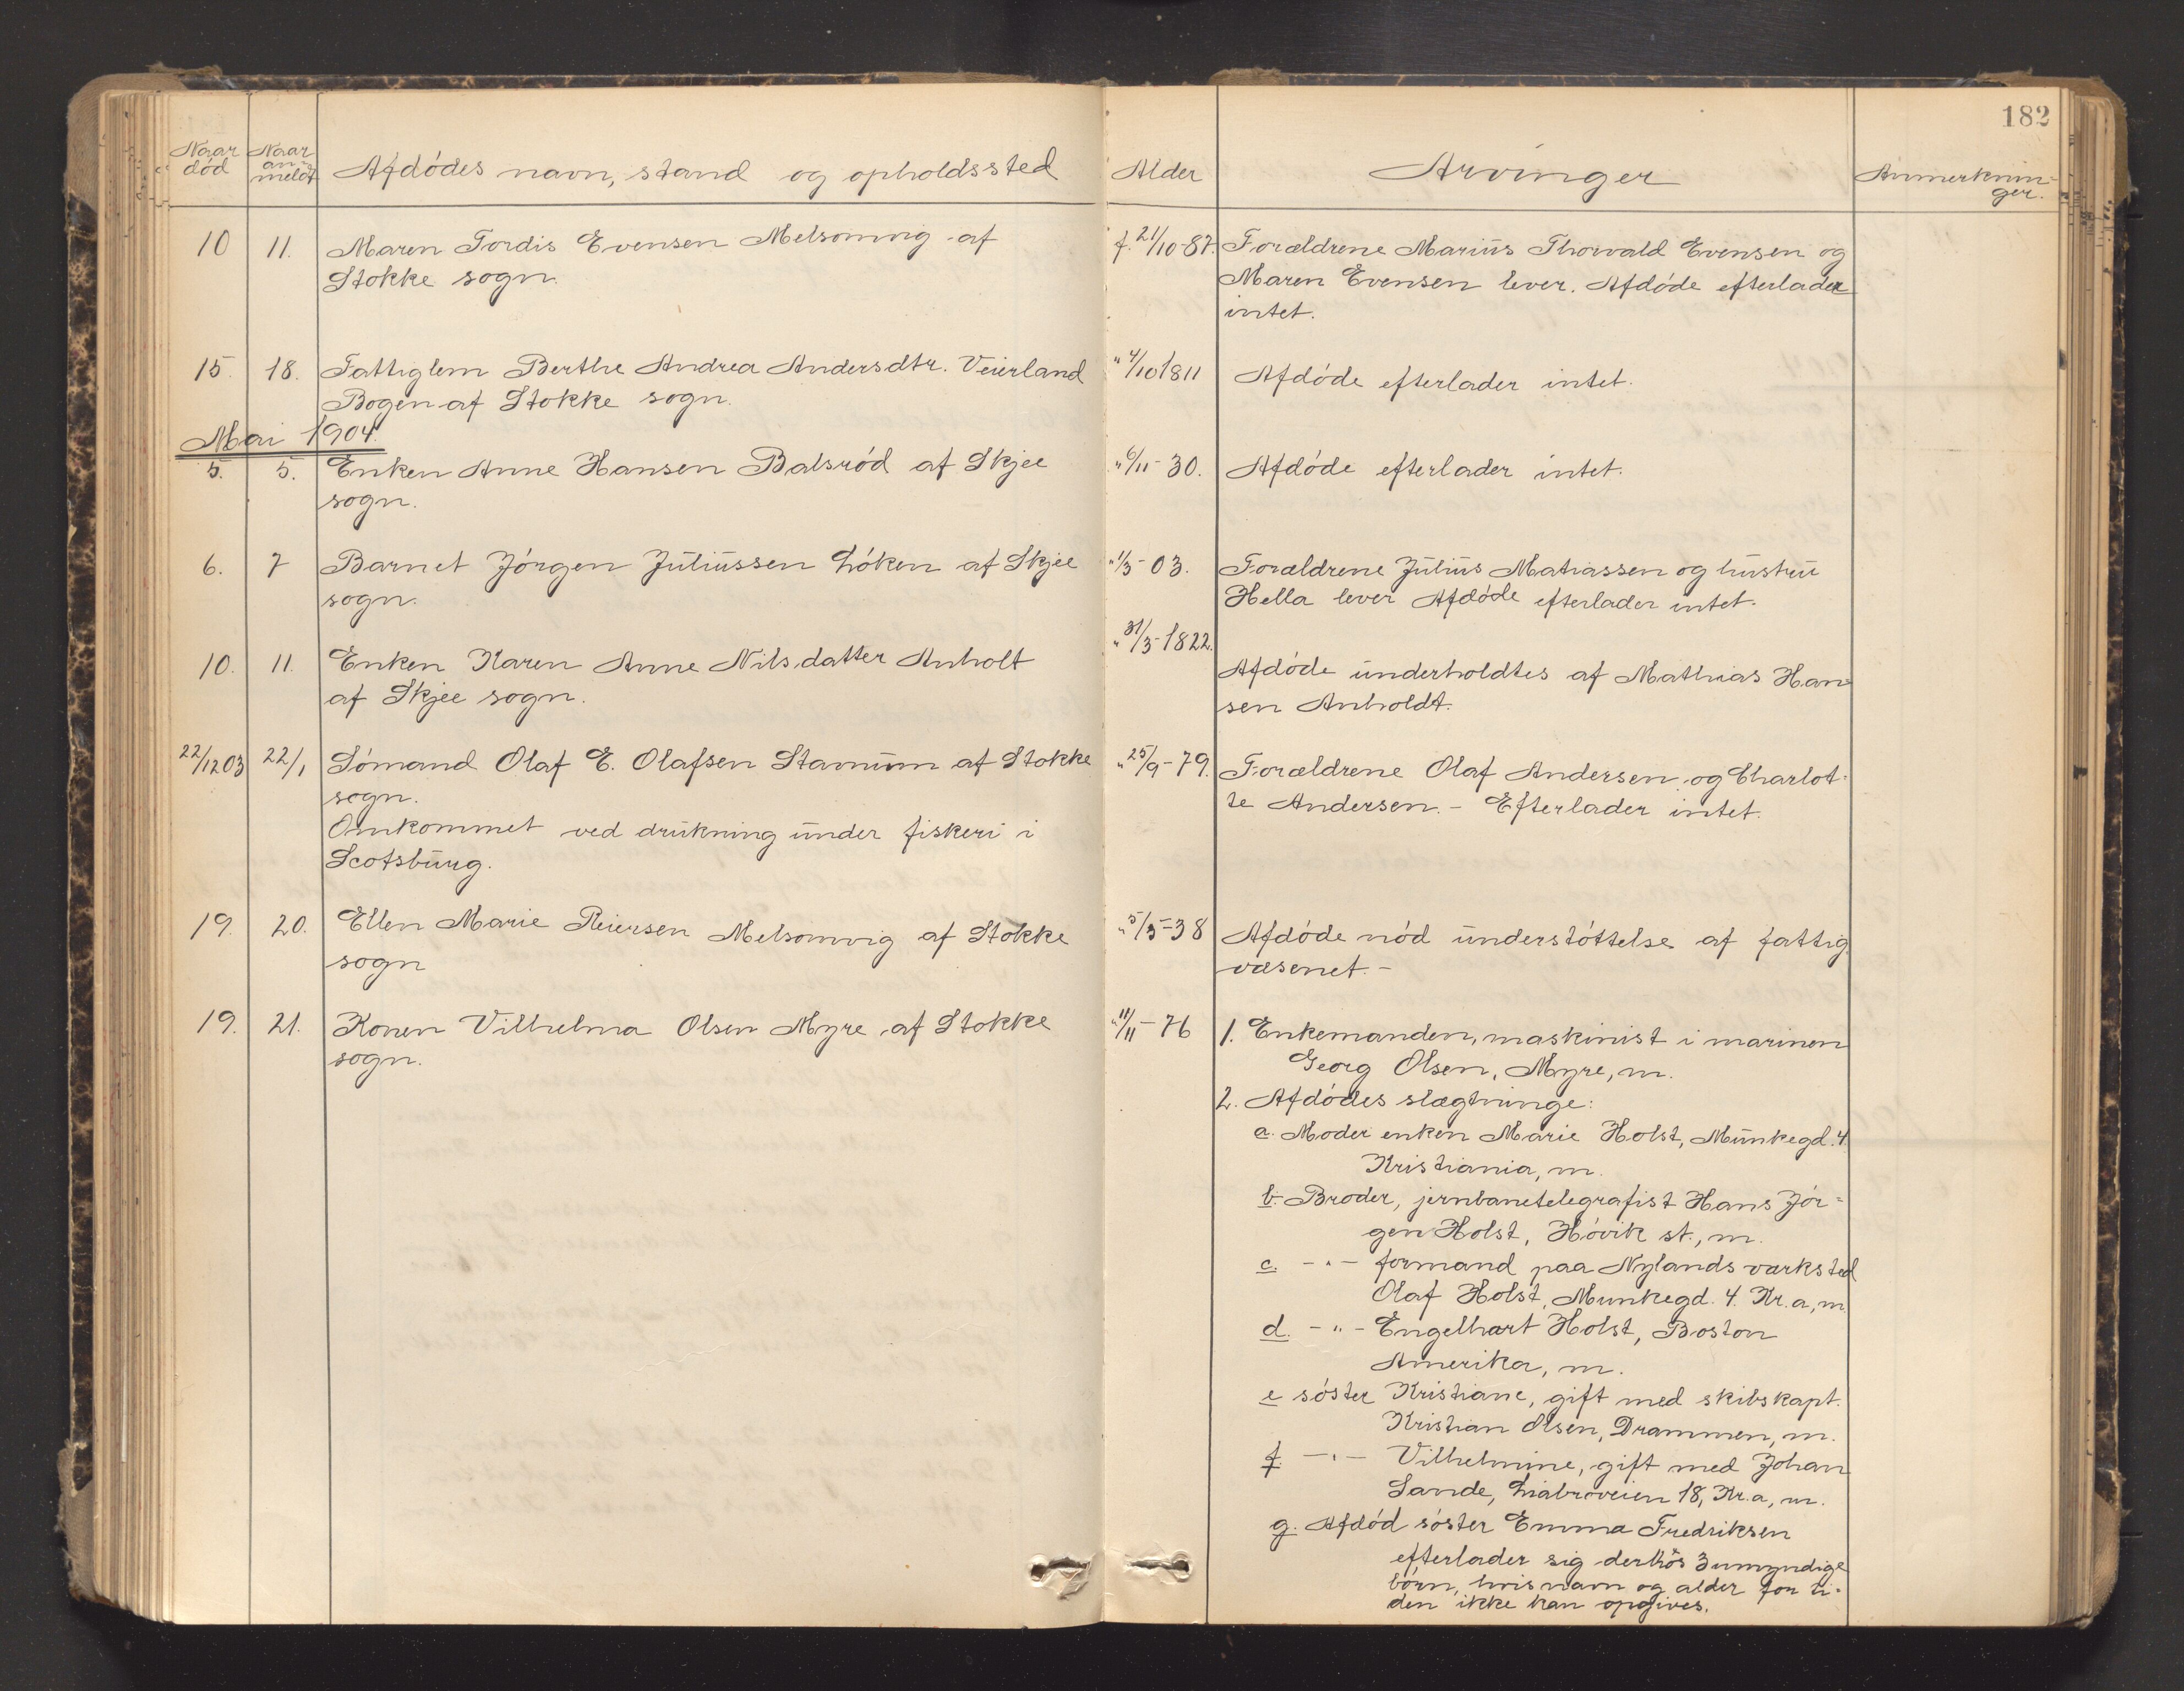 182
Naar død Naar anmeldt Afdødes navn, stand og opholdssted Alder Arvinger Anmerkninger.
10 11. Maren Tordis Evensen Melsomvig af f. 21/10-87. Forældrene Marius Thorvald Evensen og
Stokke sogn. Maren Evensen lever. Afdøde efterlader
intet.
15. 18. Fattiglem Berthe Andrea Andersdtr. Veierland " 4/10 1811 Afdøde efterlader intet.
Bogen af Stokke sogn.
Mai 1904.
5. 5. Enken Anne Hansen Balsrød af Skjee " 6/11-30. Afdøde efterlader intet.
sogn.
6. 7 Barnet Jørgen Juliussen Løken af Skjee " 1/3-03. Forældrene Julius Mathiassen og hustru
sogn. Hella lever Afdøde efterlader intet.
10. 11. Enken Karen Anne Nilsdatter Anholt " 31/3-1822. Afdøde underholdtes af Mathias Han-
af Skjee sogn. sen Anholdt.
22/12 03 22/1 Sømand Olaf E. Olafsen Stavnum af Stokke " 25/9-79. Forældrene Olaf Andersen og Charlot-
sogn. te Andersen. - Efterlader intet.
Omkommet ved drukning under fiskeri i
Scotsburg.
19. 20. Ellen Marie Reiersen Melsomvig af Stokke " 5/3-38 Afdøde nød understøttelse af fattig
sogn væsenet. -
19. 21. Konen Vilhelma Olsen Myre af Stokke " 11/11-76 1. Enkemanden, maskinist i marinen
sogn. Georg Olsen, Myre, m.
2. Afdødes slægtninge:
a. Moder enken Marie Holst, Munkegd. 4.
Kristiania, m.
b. Broder, jernbanetelegrafist Hans Jør-
gen Holst, Høvik st., m.
c. - " - formand paa Nylands værksted
Olaf Holst, Munkegd. 4. Kr.a, m.
d. - " - Engelhart Holst, Boston
Amerika, m.
e søster Kristiane, gift med skibskapt.
Kristian Olsen, Drammen, m.
f. - " - Vilhelmine, gift med Johan
Sande, Liabroveien 18, Kr.a, m.
g. Afdød søster Emma Fredriksen
efterlader sig derhos 3 umyndige
børn, hvis navn og alder for ti-
den ikke kan opgives.